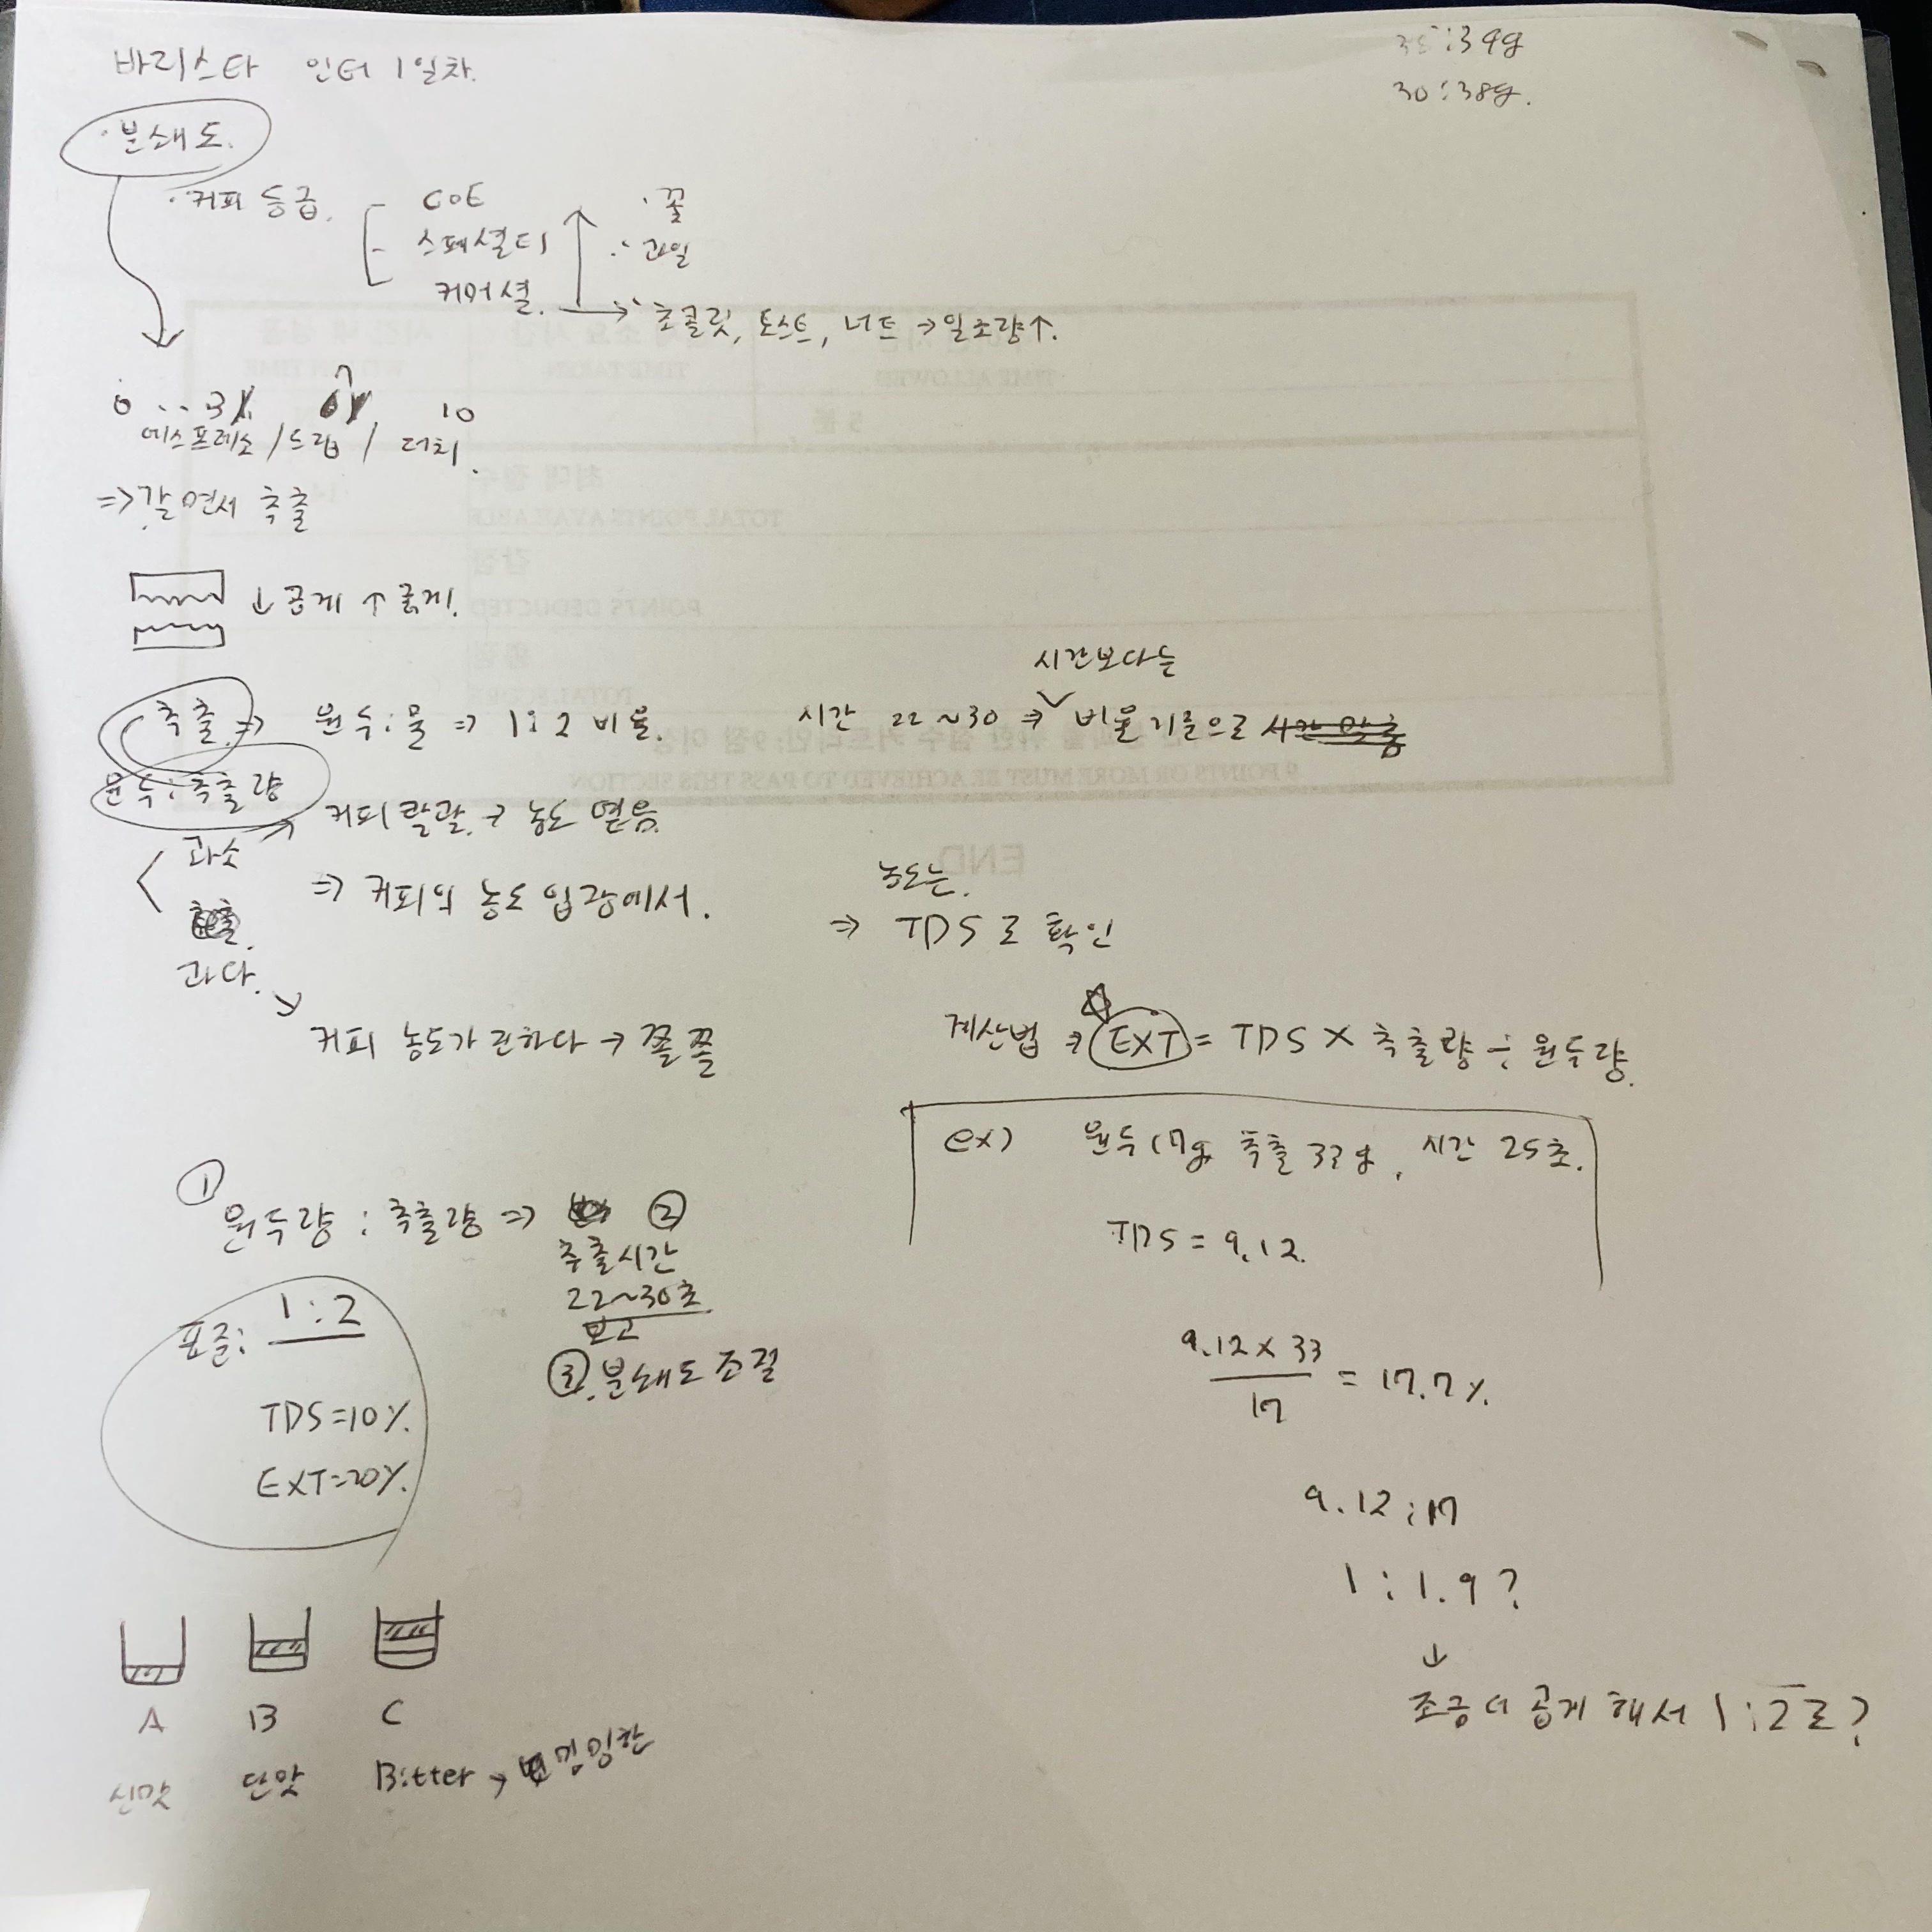 바리스타 인터 1일차.
35:39g
30:38g.
·분쇄도.
·커피 등급.
COE
스페셜티
커머셜.
·꽃
·과일
초콜릿, 토스트, 너트 → 일조량↑.
0 .. 3 6 10
에스프레소 / 드립 / 더치.
⇒ 갈면서 추출
↓ 곱게 ↑ 굵게.
시간보다는
추출 ⇒ 원두:물 ⇒ 1:2 비율. 시간 22~30 ⇒ 비율 기준으로 시간 맞춤
원두:추출량
과소 → 커피 콸콸. → 농도 옅음.
⇒ 커피의 농도 입장에서.
추출.
과다.
→ 커피 농도가 진하다 → 쫄쫄
농도는.
⇒ TDS로 확인
계산법 ⇒ ☆ EXT = TDS × 추출량 ÷ 원두량.
ex) 원두 17g 추출 33g, 시간 25초.
TDS = 9.12.
9.12 × 33
17
= 17.7%.
9.12:17
1:1.9?
↓
조금 더 곱게 해서 1:2로?
① 원두량:추출량 ⇒ ②
추출시간
22~30초
보고
③. 분쇄도 조절
표준: 1:2
TDS=10%.
EXT=20%.
A B C
신맛 단맛 Bitter → 밍밍한